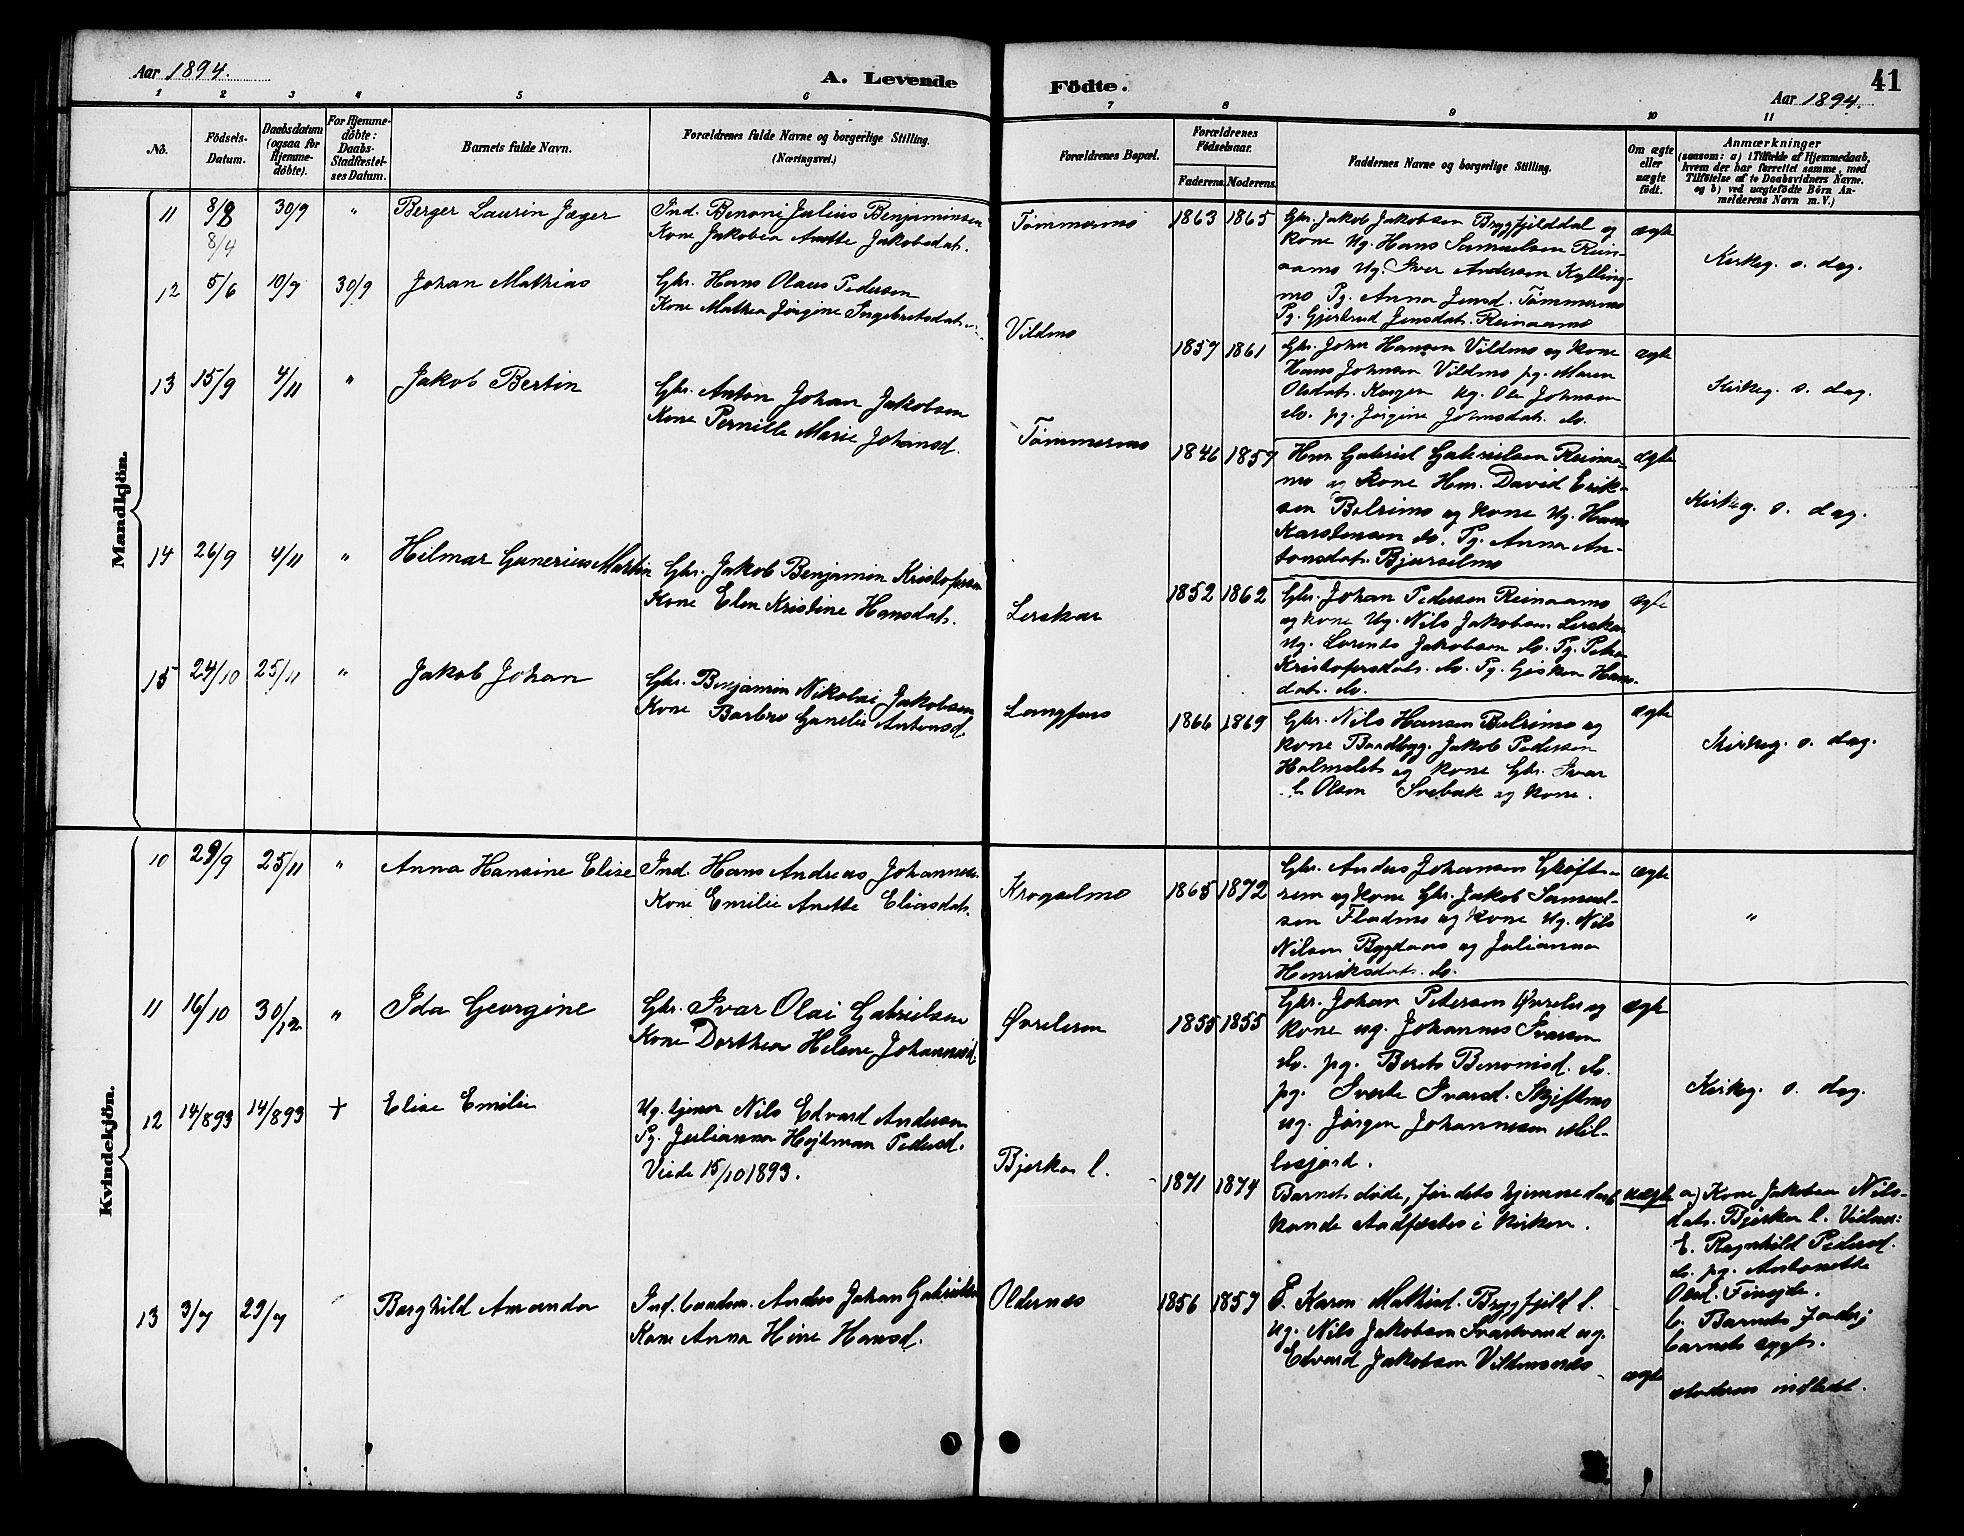 Aar 1894.
A. Levende
Födte.
41
Aar 1894.
1 2 3 4 5 6 7 8 9 10 11
No.
Födsels-
Datum.
Daabsdatum
(ogsaa for
Hjemme-
döbte).
For Hjemme-
döbte:
Daabs-
Stadfæstel-
ses Datum.
Barnets fulde Navn.
Forældrenes fulde Navne og borgerlige Stilling.
(Næringsvei.)
Forældrenes Bopæl.
Forældrenes
Födselsaar.
Faderens. Moderens.
Faddernes Navne og borgerlige Stilling.
Om ægte
eller
uægte
födt.
Anmærkninger
(saasom: a) i Tilfælde af Hjemmedaab,
hvem der har forrettet samme, med
Tilföielse af to Daabsvidners Navne.
og b) ved uægtefödte Börn An-
melderens Navn m. V.)
Mandkjön.
11 8/8 30/9 " Berger Laurin Jæger
8/4
Ind. Benoni Julius Benjaminsen
Kone Jakobea Anette Jakobsdat.
Tømmermo
1863 1865
Gbr. Jakob Jakobsen Bryggfjelddal og
Kone Ug. Hans Samuelsen Rein-
aamo Ug. Iver Andersen Kylling-
mo Pg. Anna Jensd. Tømmermo
Pg. Gjertrud Jensdat. Reinaamo
ægte
Kirkeg. s. dag.
12 5/6 10/9 30/9 Johan Mathias
Gbr. Hans Olaus Pedersen
Kone Mathea Jørgine Ingebretsdat.
Vildmo
1857 1861
Gbr. John Hansen Vildmo og Kone
Hans Johnsen Vildmo pg. Maren
Olsdat. Kargen Ug. Ole Johnsen
do. pg. Jørgine Johnsdat. do.
ægte
Kirkeg. s. dag.
13 15/9 4/11 " Jakob Bertin
Gbr. Anton Johan Jakobsen
Kone Pernille Marie Johansd.
Tømmermo
1846 1857
Hm. Gabriel Gabrielsen Reinaa-
mo og Kone Hm. David Erik-
sen Bolsimo og Kone Ug. Hans
Karstensen do. Pg. Anna An-
tonsdat. Bjurselmo
ægte
Kirkeg. s. dag.
14 26/9 4/11 " Hilmar Gunerius Martin
Gbr. Jakob Benjamin Kristofersen
Kone Elen Kristine Hansdat.
Lerskar
1852 1862
Gbr. Johan Pedersen Reinaamo
og Kone Ug. Nils Jakobsen Lerskar
Ug. Lorents Jakobsen do. Pg. Petra
Kristofersdat. do. Pg. Gjsken Hans-
dat. do.
ægte
15 24/10 25/11 " Jakob Johan
Gbr. Benjamin Nikolai Jakobsen
Kone Barbro Gunelie Antonsd.
Langfors
1866 1869
Gbr. Nils Hansen Bolsimo og
Kone Baadbygg. Jakob Pedersen
Holmslet og Kone Gbr. Ivar
Olsen Svebak og Kone.
ægte
Kirkeg. s. dag.
Kvindekjön.
10 29/9 25/11 " Anna Hansine Elise
Ind. Hans Andreas Johannes.
Kone Emilie Anette Eliasdat.
Krogselmo
1865 1872
Gbr. Anders Johansen Grøft-
rem og Kone Gbr. Jakob Samuel-
sen Fladmo og Kone Ug. Nils
Nilsen Bygdaas og Julianna
Henriksdat. do.
ægte
"
11 16/10 30/12 " Ida Georgine
Gbr. Ivar Olai Gabrielsen
Kone Dorthea Helene Johannesd.
Øvreleren
1855 1855
Gbr. Johan Petersen Øvreler og
Kone ug. Johannes Ivarsen
do. pg. Berit Benonisd. do.
pg. Sverte Ivarsd. Skjiftmo
ug. Jørgen Johannesen Mil-
lesjord.
ægte
Kirkeg. s. dag.
12 14/893 14/893 + Elise Emilie
Ug. tjener Nils Edvard Andersen
Pg. Julianna Hejdman Pedersd.
Viede 15/10 1893.
Bjerka l.
1871 1874
Barnet døde, før dets hjemmedaab
kunde stadfæstes i kirken.
uægte
a) Kone Jakobea Nils-
dat. Bjerka l. Vidner:
E. Ragnhild Pedersd.
do. pg. Antonette
Olsd. Finejde.
b. Barnets Fader;
barnet sygt.
13 3/7 29/7 Barghild Amanda
Ind. Landm. Anders Johan Gabrielsen
Kone Anna Hine Hansd.
Oldernæs
1856 1857
E. Karen Mathisd. Bryggfjeld l.
Ug. Nils Jakobsen Svartvand ug.
Edvard Jakobsen Vildmones
ægte
Moderen indledet.